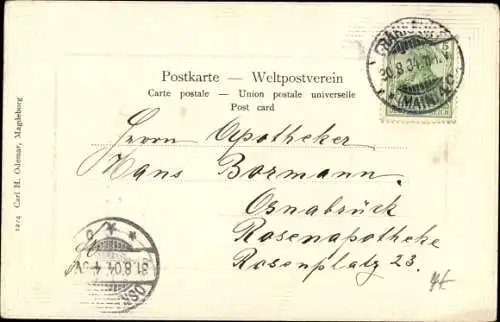 Postkarte — Weltpostverein
Carte postale — Union postale universelle
Post card
30.8.04.
(MAIN)
5
Herrn Apotheker
Hans Bormann.
Osnabrück
Rosenapotheke
Rosenplatz 23.
31.8.04.
1212 Carl H. Odemar, Magdeburg